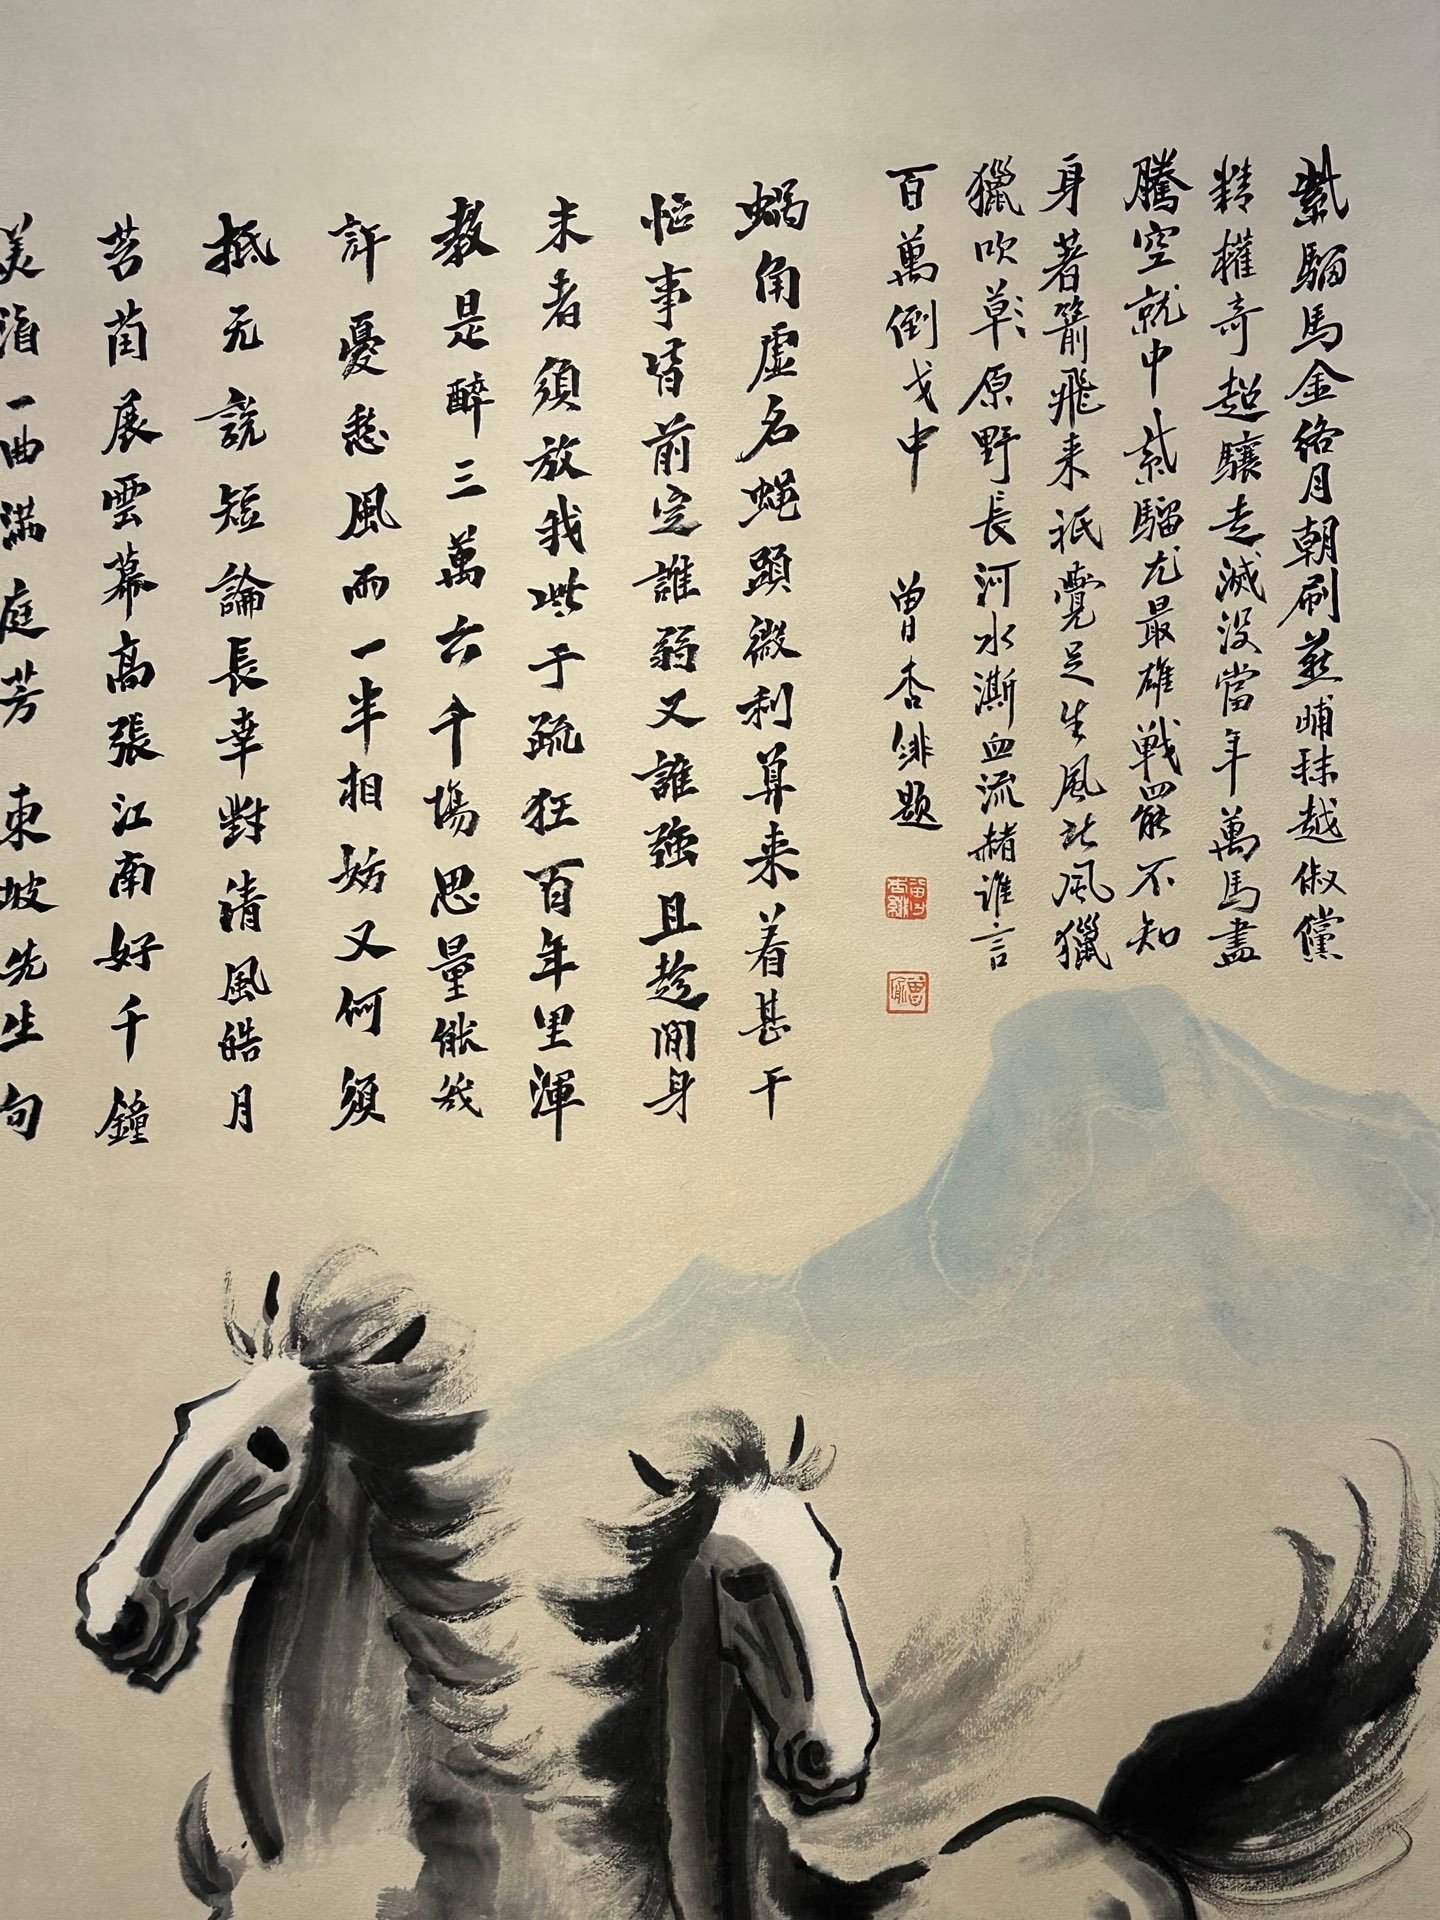 紫騮馬金絡月朝刷燕晡秣越俶儻
精權奇超驤走滅没當年萬馬盡
騰空就中紫騮尤最雄戰罷不知
身著箭飛来祇覺足生風北風獵
獵吹草原野長河水澌血流赭谁言
百萬倒戈中
曾杏緋題
蝸角虚名蝇頭微利算来着甚干
忙事皆前定誰弱又誰強且趁閒身
未老須放我些子疏狂百年里渾
教是醉三萬六千場思量能幾
許憂愁風雨一半相妨又何須
抵死説短論長幸對清風皓月
苔茵展雲幕高張江南好千鐘
美酒一曲滿庭芳
東坡先生句